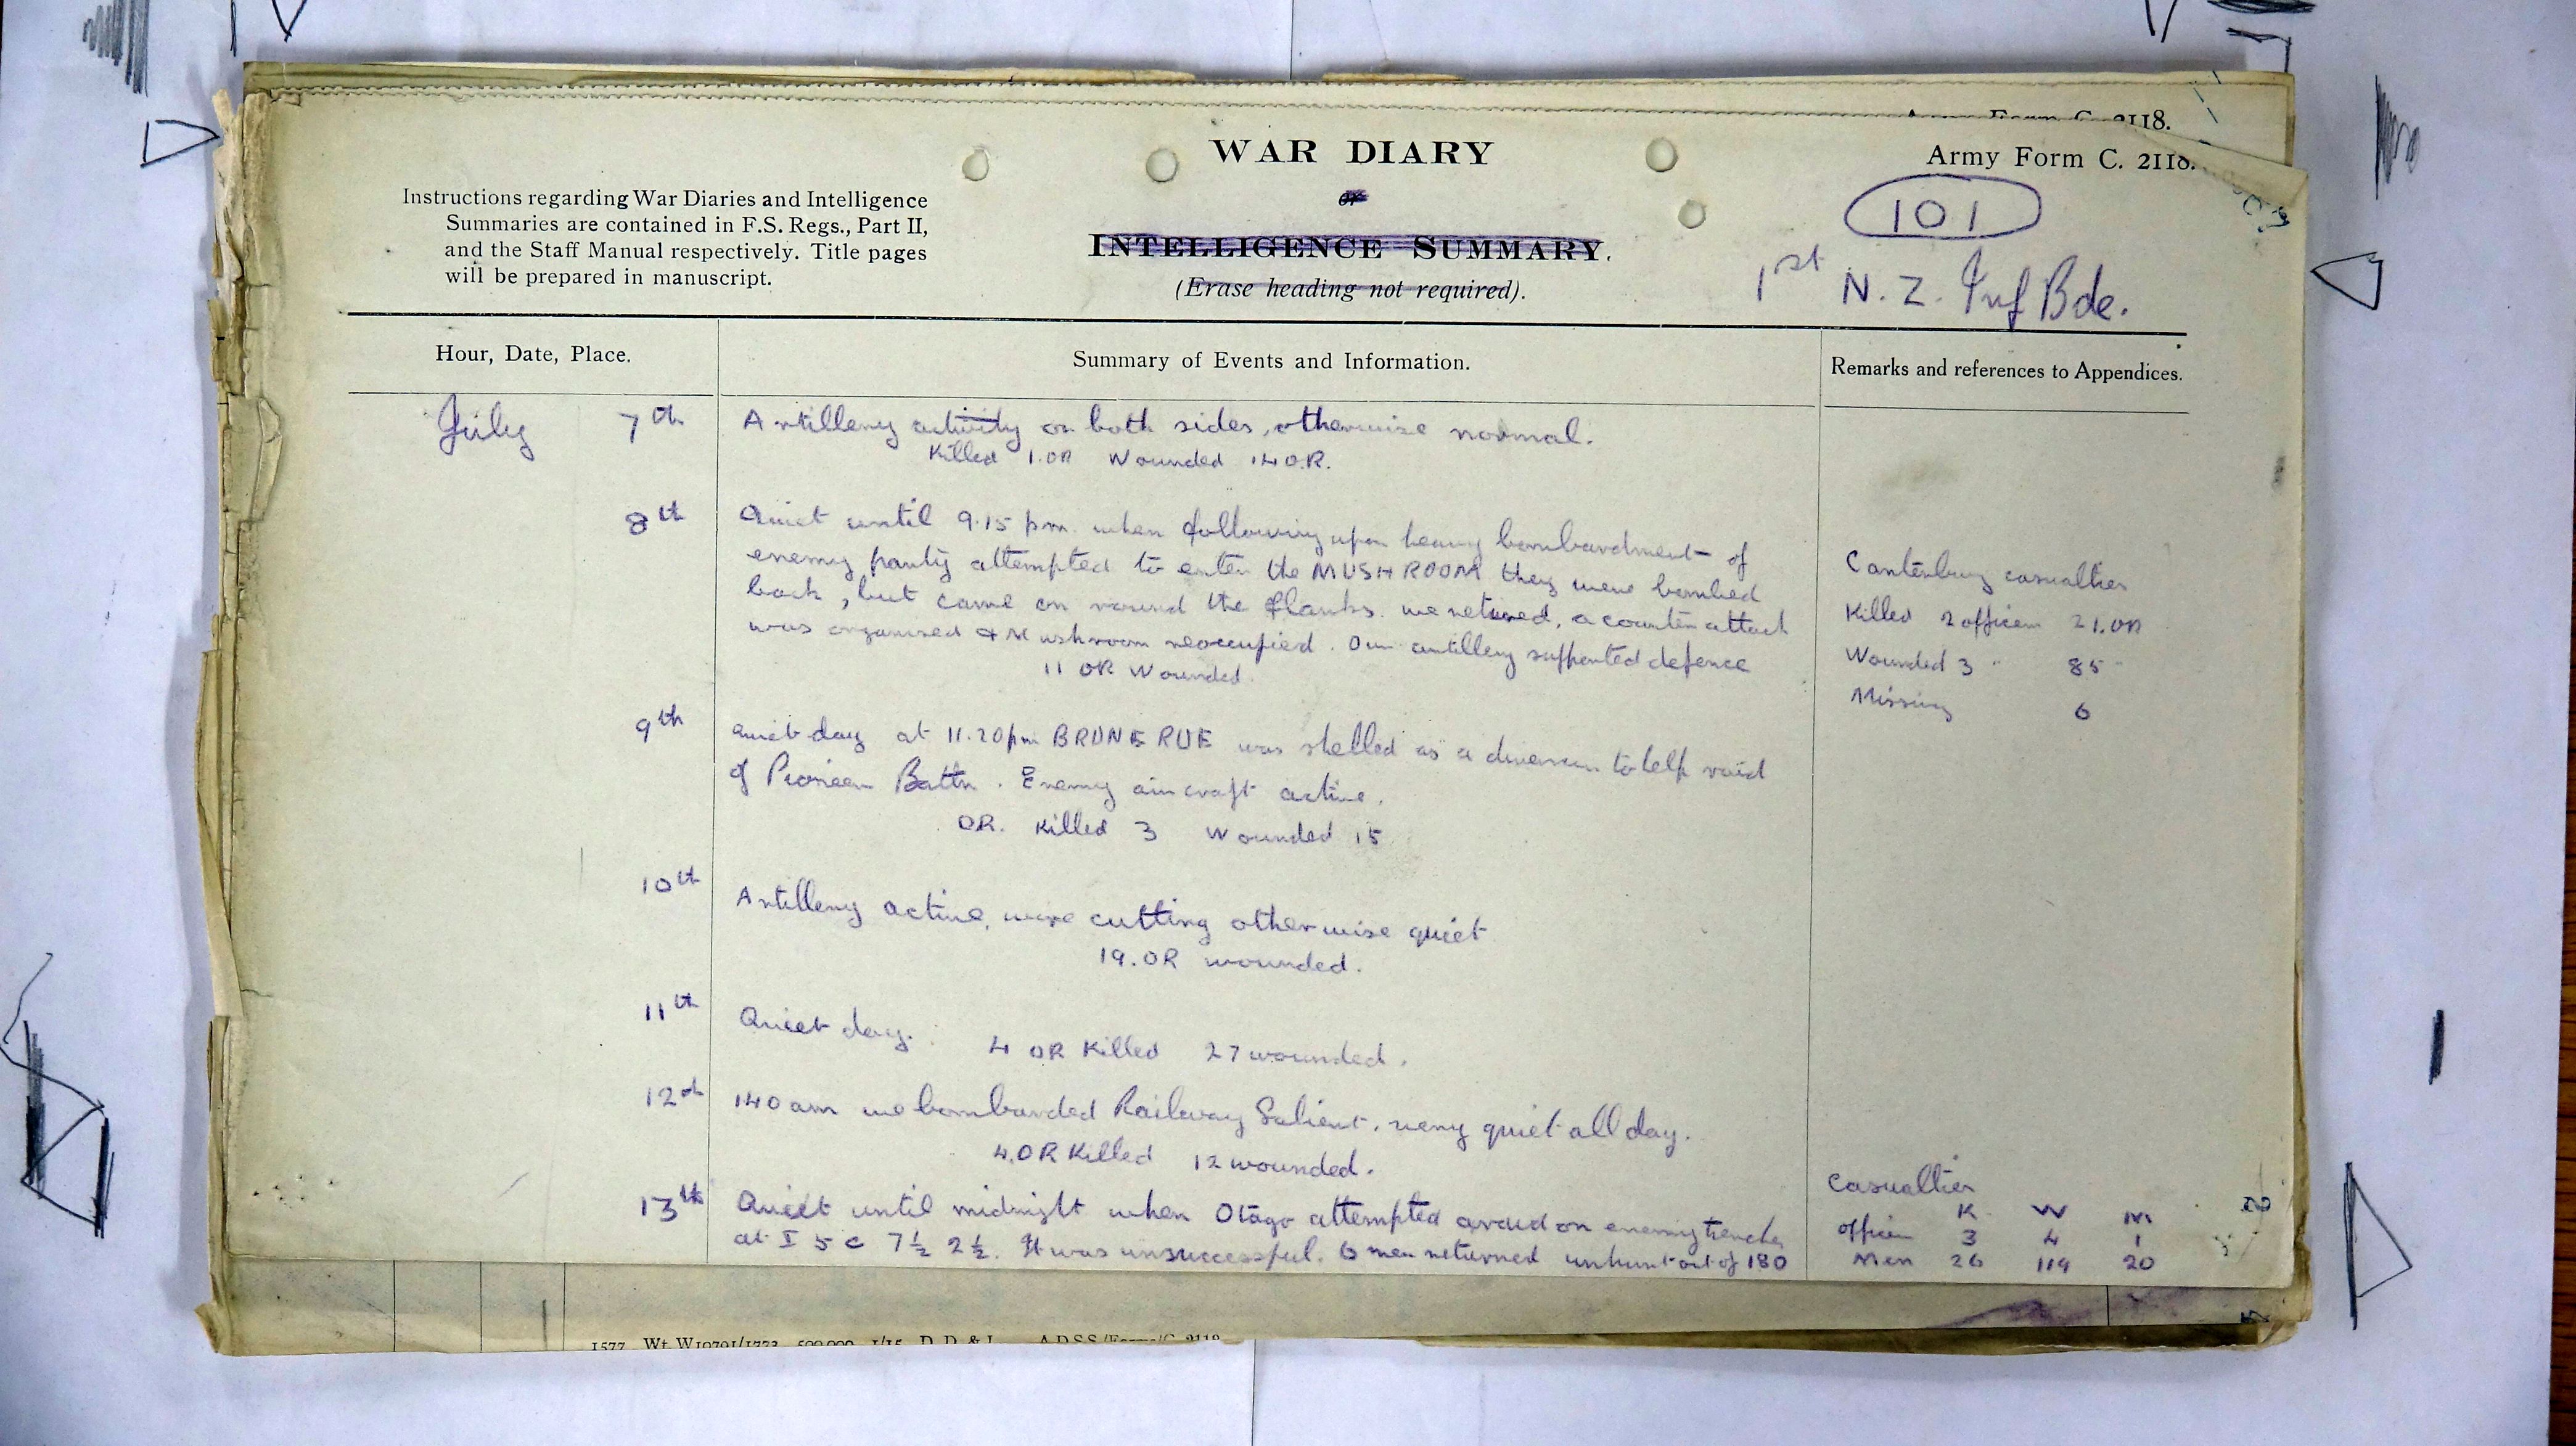 Army Form C. 2118.
WAR DIARY
Army Form C. 2118.
or
101
Instructions regarding War Diaries and Intelligence
Summaries are contained in F.S. Regs., Part II,
and the Staff Manual respectively. Title pages
will be prepared in manuscript.
INTELLIGENCE SUMMARY.
(Erase heading not required).
1st N.Z. Inf Bde.
Hour, Date, Place.
Summary of Events and Information.
Remarks and references to Appendices.
July 7th
Artillery activity on both sides, otherwise normal.
Killed 1.OR Wounded 14 O.R.
8th
Quiet until 9.15 pm. when following upon heavy bombardment of
enemy party attempted to enter the MUSHROOM they were bombed
back, but came on round the flanks. we retired, a counter attack
was organised & Mushroom reoccupied. Our artillery supported defence
11 OR Wounded
Canterbury casualties
Killed 2 officers 21.OR
Wounded 3 " 85 "
Missing 6
9th
Quiet day at 11.20 pm BRUNE RUE was shelled as a diversion to help raid
of Pioneer Battn. Enemy aircraft active.
OR. Killed 3 Wounded 15
10th
Artillery active, wire cutting otherwise quiet
19.OR wounded.
11th
Quiet day.
4 OR Killed 27 wounded.
12th
140 am we bombarded Railway Salient. very quiet all day.
4.OR Killed 12 wounded.
13th
Quiet until midnight when Otago attempted a raid on enemy trenches
at I 5 c 7½ 2½. It was unsuccessful. 6 men returned unhurt out of 180
Casualties
K W M
officers 3 4 1
Men 26 119 20
1577 Wt. W10791/1773 500,000 1/15 D. D. & L. A.D.S.S./Forms/C. 2118